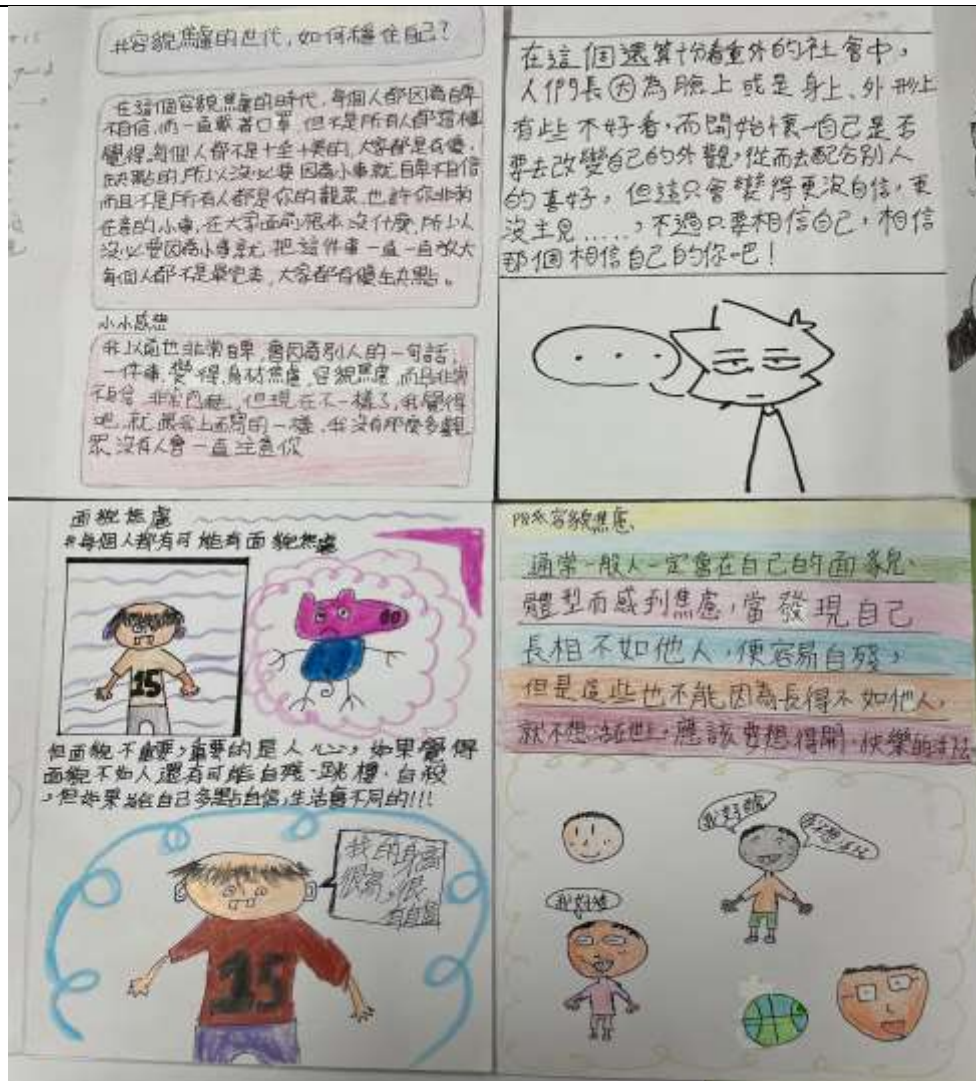 #容貌焦慮的世代,如何穩住自己?
在這個容貌焦慮的時代,每個人都因為自卑
不自信,而一直戴著口罩,但不是所有人都這樣
覺得,每個人都不是十全十美的,大家都是有優、
缺點的,所以沒必要因為小事就自卑不自信
而且不是所有人都是你的觀眾,也許你非常
在意的小事,在大家面前根本沒什麼,所以
沒必要因為小事就把這件事一直一直放大
每個人都不是最完美,大家都有優缺點。
小小感想
我以前也非常自卑,會因為別人的一句話,
一件事,變得身材焦慮,容貌焦慮,而且非常
不自信,非常內耗,但現在不一樣了,我覺得
吧,就跟我上面寫的一樣,我沒有那麼多觀
眾,沒有人會一直注意你
在這個還算十份看重外的社會中,
人們長因為臉上或是身上、外形上
有些不好看,而開始懷一自己是否
要去改變自己的外觀,從而去配合別人
的喜好,但這只會變得更沒自信,更
沒主見.....,不過只要相信自己,相信
那個相信自己的你吧!
面貌焦慮
#每個人都有可能有面貌焦慮
15
但面貌不重要,重要的是人心,如果覺得
面貌不如人還有可能自殘、跳樓、自殺
,但如果在自己多點自信,生活會不同的!!!
我的身高
很高,很
有自信
15
容貌焦慮
通常一般人一定會在自己的面貌、
體型而感到焦慮,當發現自己
長相不如他人,便容易自殘,
但是這些也不能因為長得不如他人,
就不想活在世上,應該要想得開、快樂的活
我好
我不想活
我好